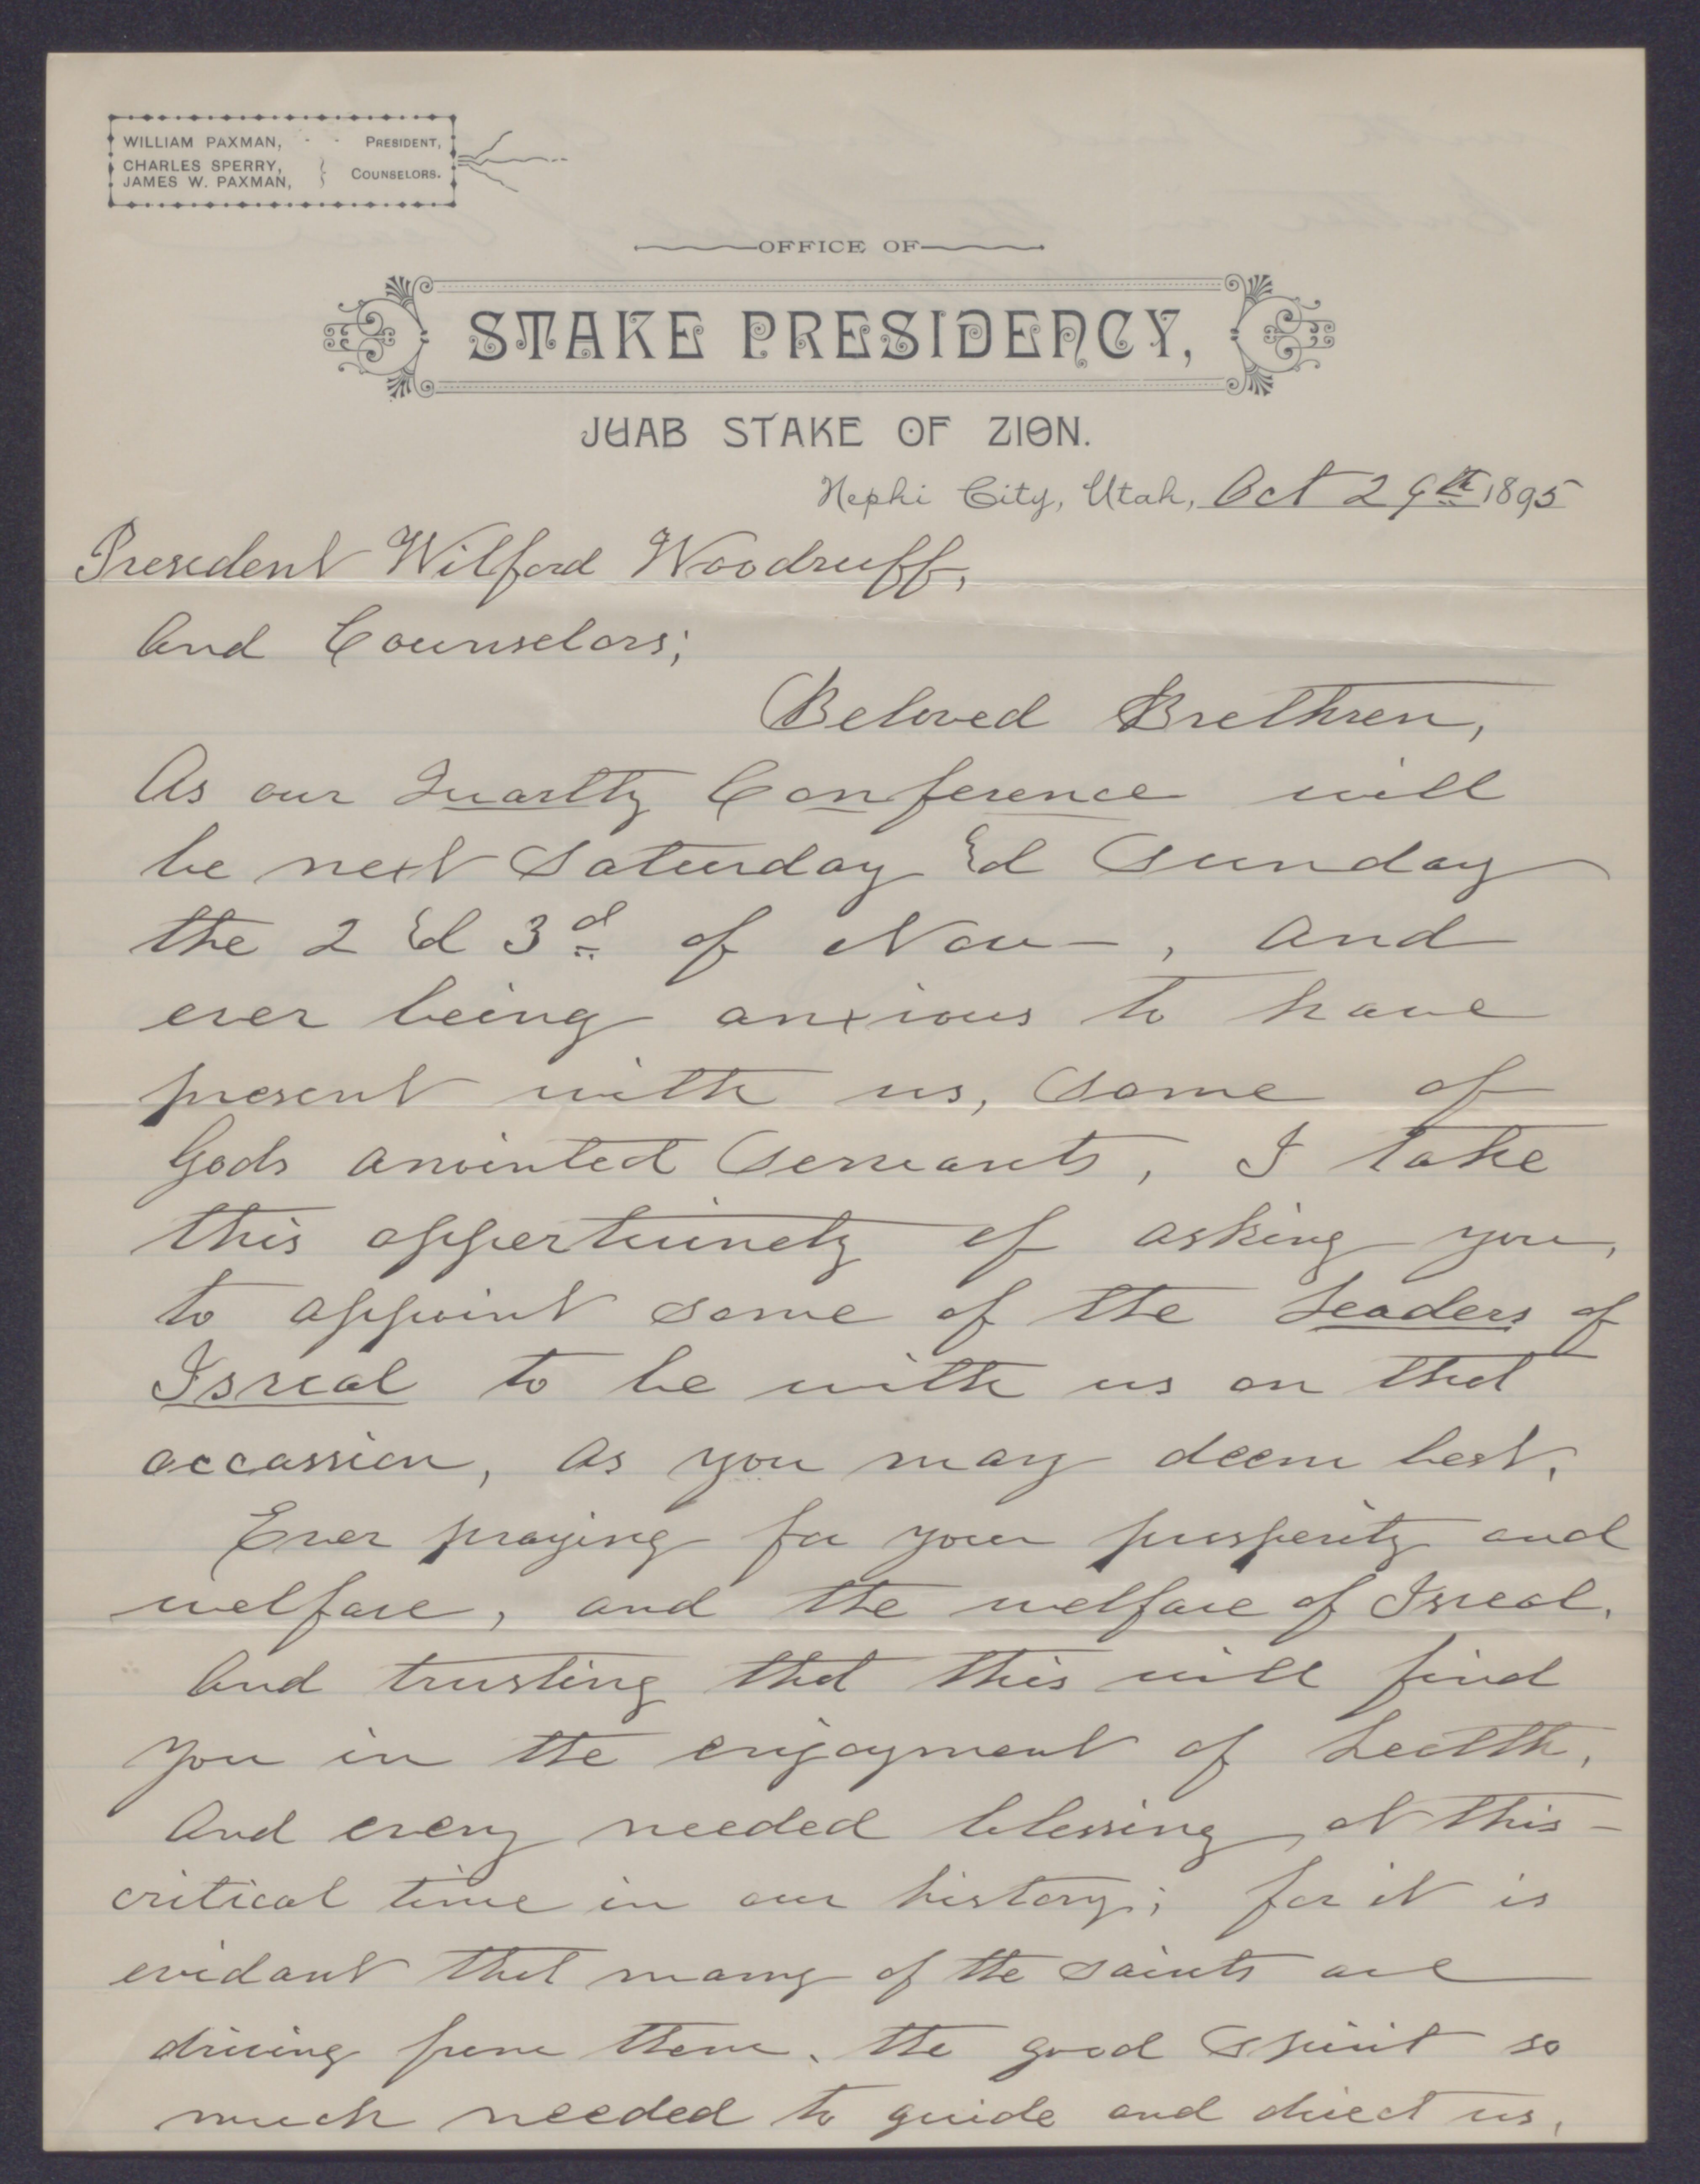 WILLIAM PAXMAN, - - PRESIDENT,
CHARLES SPERRY,
JAMES W. PAXMAN, } COUNSELORS.
OFFICE OF
STAKE PRESIDENCY,
JUAB STAKE OF ZION.
Nephi City, Utah, Oct 29th 1895
President Wilford Woodruff,
And Counselors;
Beloved Brethren,
As our Quartly Conference will
be next Saturday &d Sunday
the 2 &d 3d of Nov—, and
ever being anxious to have
present with us, Some of
Gods anointed Servants, I take
this oppertunety of asking you,
to appoint some of the Leaders of
Isreal to be with us on that
occassion, as you may deem best.
Ever praying for your prosperity and
welfare, and the welfare of Isreal.
And trusting that this will find
you in the enjoyment of health,
And every needed blessing, at this—
critical time in our history; for it is
evidant that many of the saints are
driving from them, the good Spirit so
much needed to guide and direct us,